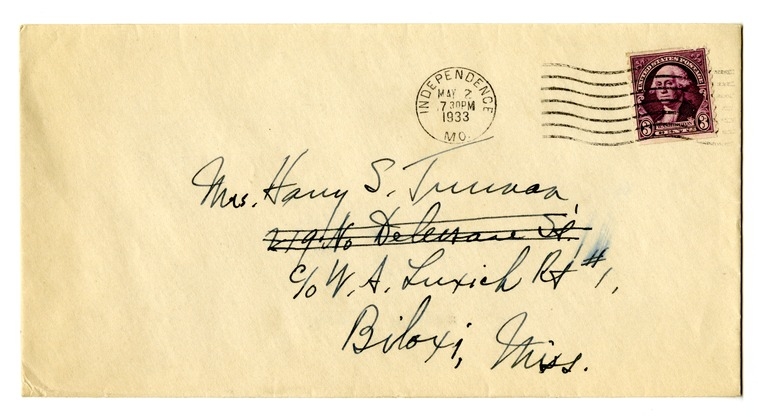 INDEPENDENCE
MAY 2
7 30 PM
1933
MO.
UNITED STATES POSTAGE
3 WASHINGTON 3
CENTS
Mrs. Harry S. Truman,
219 No Delaware St.
c/o W. A. Luxich Rt #1,
Biloxi, Miss.